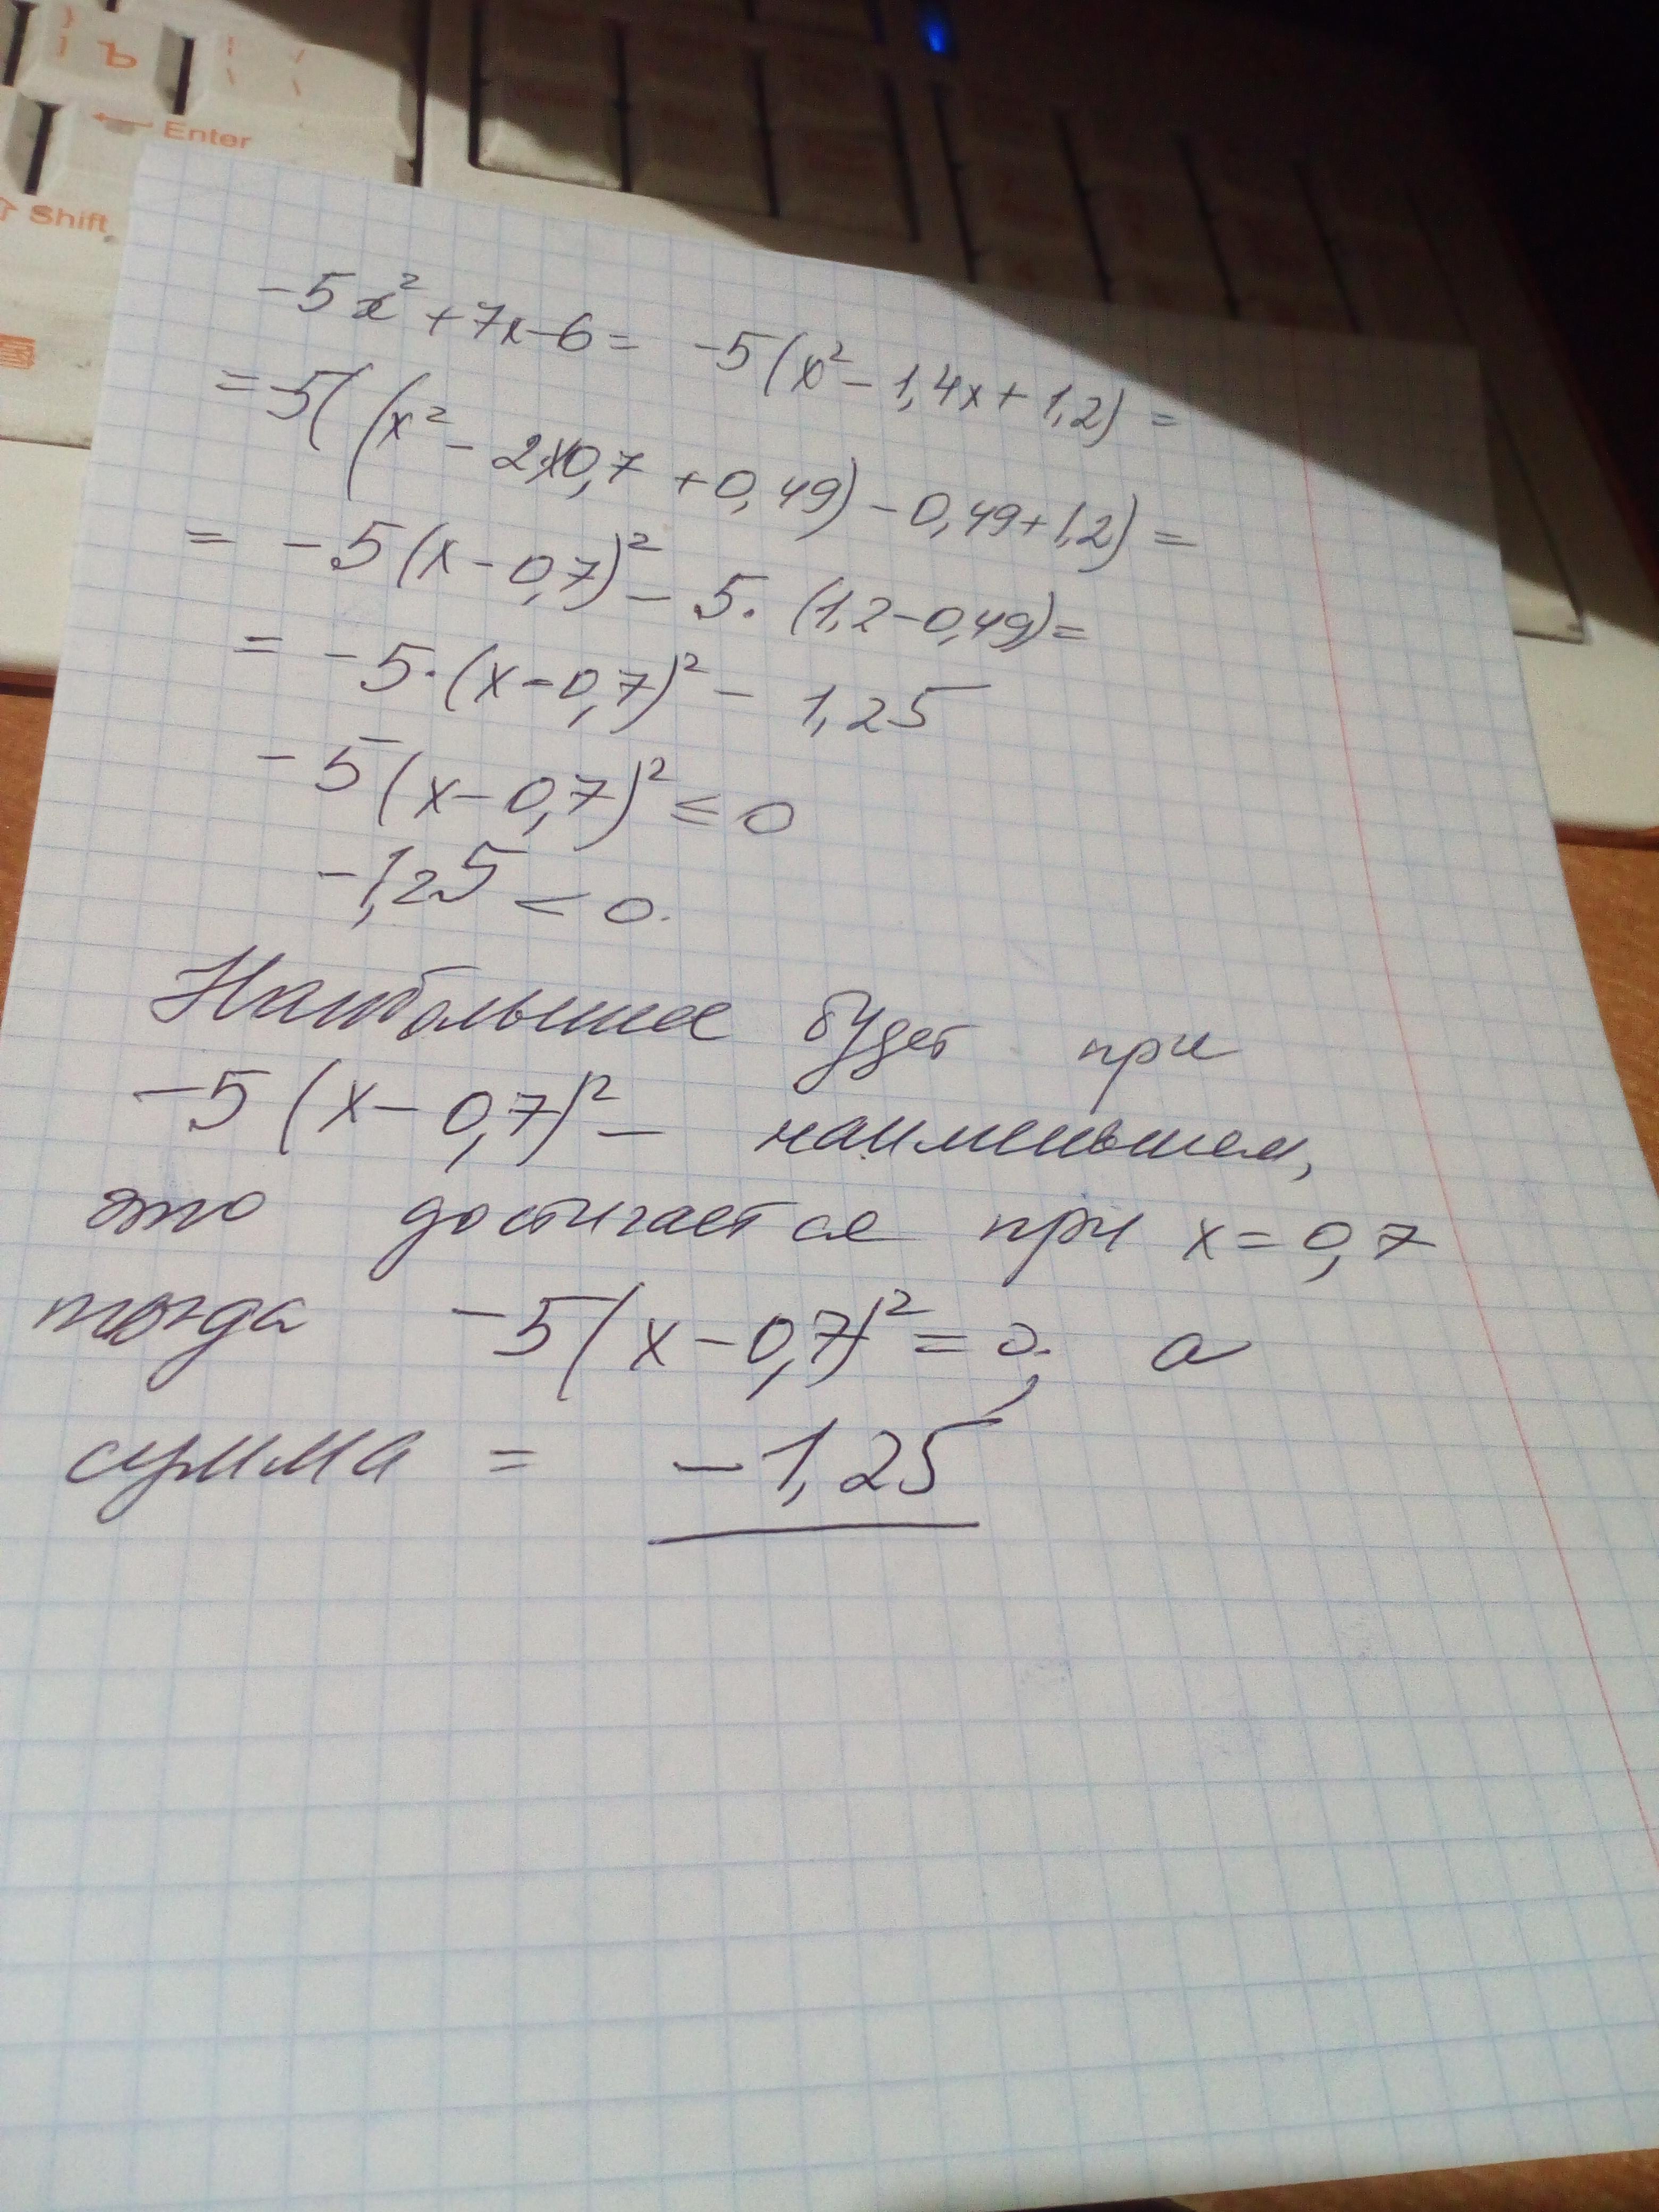 Ъ
Enter
Shift
-5x²+7x-6= -5(x²-1,4x+1,2)=
=-5((x²-2x0,7+0,49)-0,49+1,2)=
= -5(x-0,7)²-5·(1,2-0,49)=
= -5·(x-0,7)²-1,25
-5(x-0,7)²≤0
-1,25<0.
Наибольшее будет при
-5(x-0,7)²- наименьшем,
это достигается при x=0,7
тогда -5(x-0,7)²=0; а
сумма = -1,25